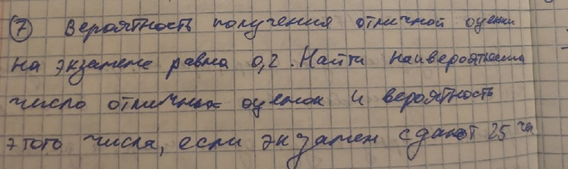 ⑦ Вероятность получения отличной оценки
на экзамене равна 0,2. Найти наивероятнейшее
число отличных оценок и вероятность
этого числа, если экзамен сдают 25 ч.